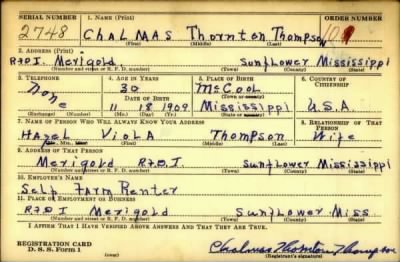 SERIAL NUMBER 1. NAME (Print) ORDER NUMBER
2748 Chalmas Thornton Thompson
(First) (Middle) (Last)
2. ADDRESS (Print)
R7D I. Merigold Sunflower Mississippi
(Number and street or R. F. D. number) (Town) (County) (State)
3. TELEPHONE 4. AGE IN YEARS 5. PLACE OF BIRTH 6. COUNTRY OF CITIZENSHIP
None 30 McCool
DATE OF BIRTH (Town or county)
11 18 1909 Mississippi U.S.A.
(Exchange) (Number) (Mo.) (Day) (Yr.) (State or country)
7. NAME OF PERSON WHO WILL ALWAYS KNOW YOUR ADDRESS 8. RELATIONSHIP OF THAT PERSON
Hazel Viola Thompson Wife
(First) (Middle) (Last)
9. ADDRESS OF THAT PERSON
Merigold R7D.I Sunflower Mississippi
(Number and street or R. F. D. number) (Town) (County) (State)
10. EMPLOYER'S NAME
Self Farm Renter
11. PLACE OF EMPLOYMENT OR BUSINESS
R7D I Merigold Sunflower Miss
(Number and street or R. F. D. number) (Town) (County) (State)
I AFFIRM THAT I HAVE VERIFIED ABOVE ANSWERS AND THAT THEY ARE TRUE.
REGISTRATION CARD
D. S. S. Form 1 Chalmas Thornton Thompson
(over) (Registrant's signature)